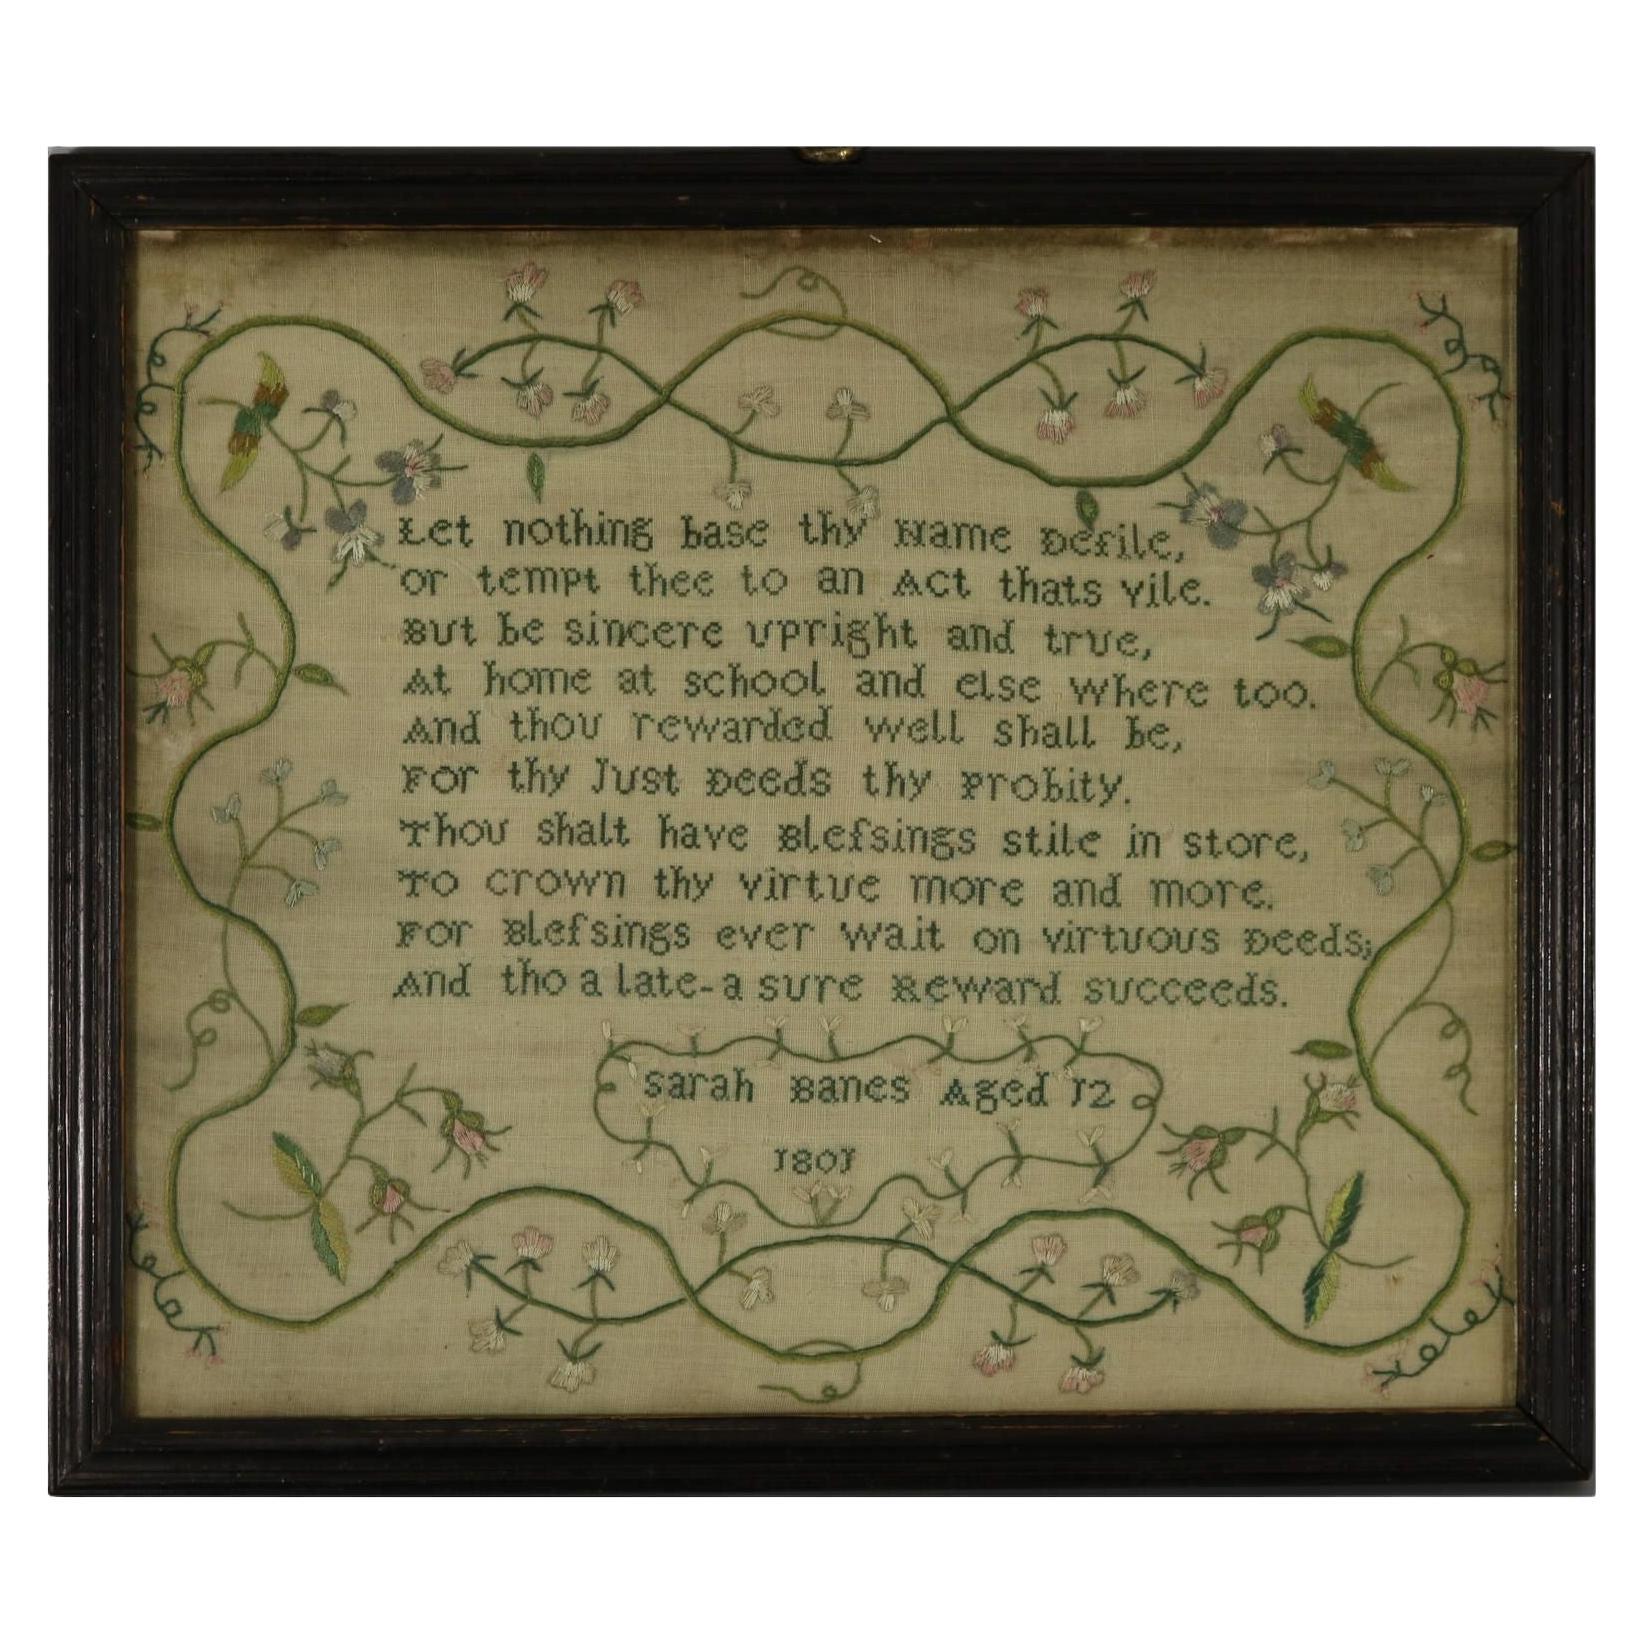 Let nothing base thy Name Defile,
or tempt thee to an Act thats vile.
But be sincere upright and true,
At home at school and else where too.
And thou rewarded well shall be,
For thy Just Deeds thy Probity.
Thou shalt have Blefsings stile in store,
To crown thy virtue more and more.
For Blefsings ever wait on virtuous Deeds;
And tho a late-a sure Reward succeeds.
Sarah Banes Aged 12
1801